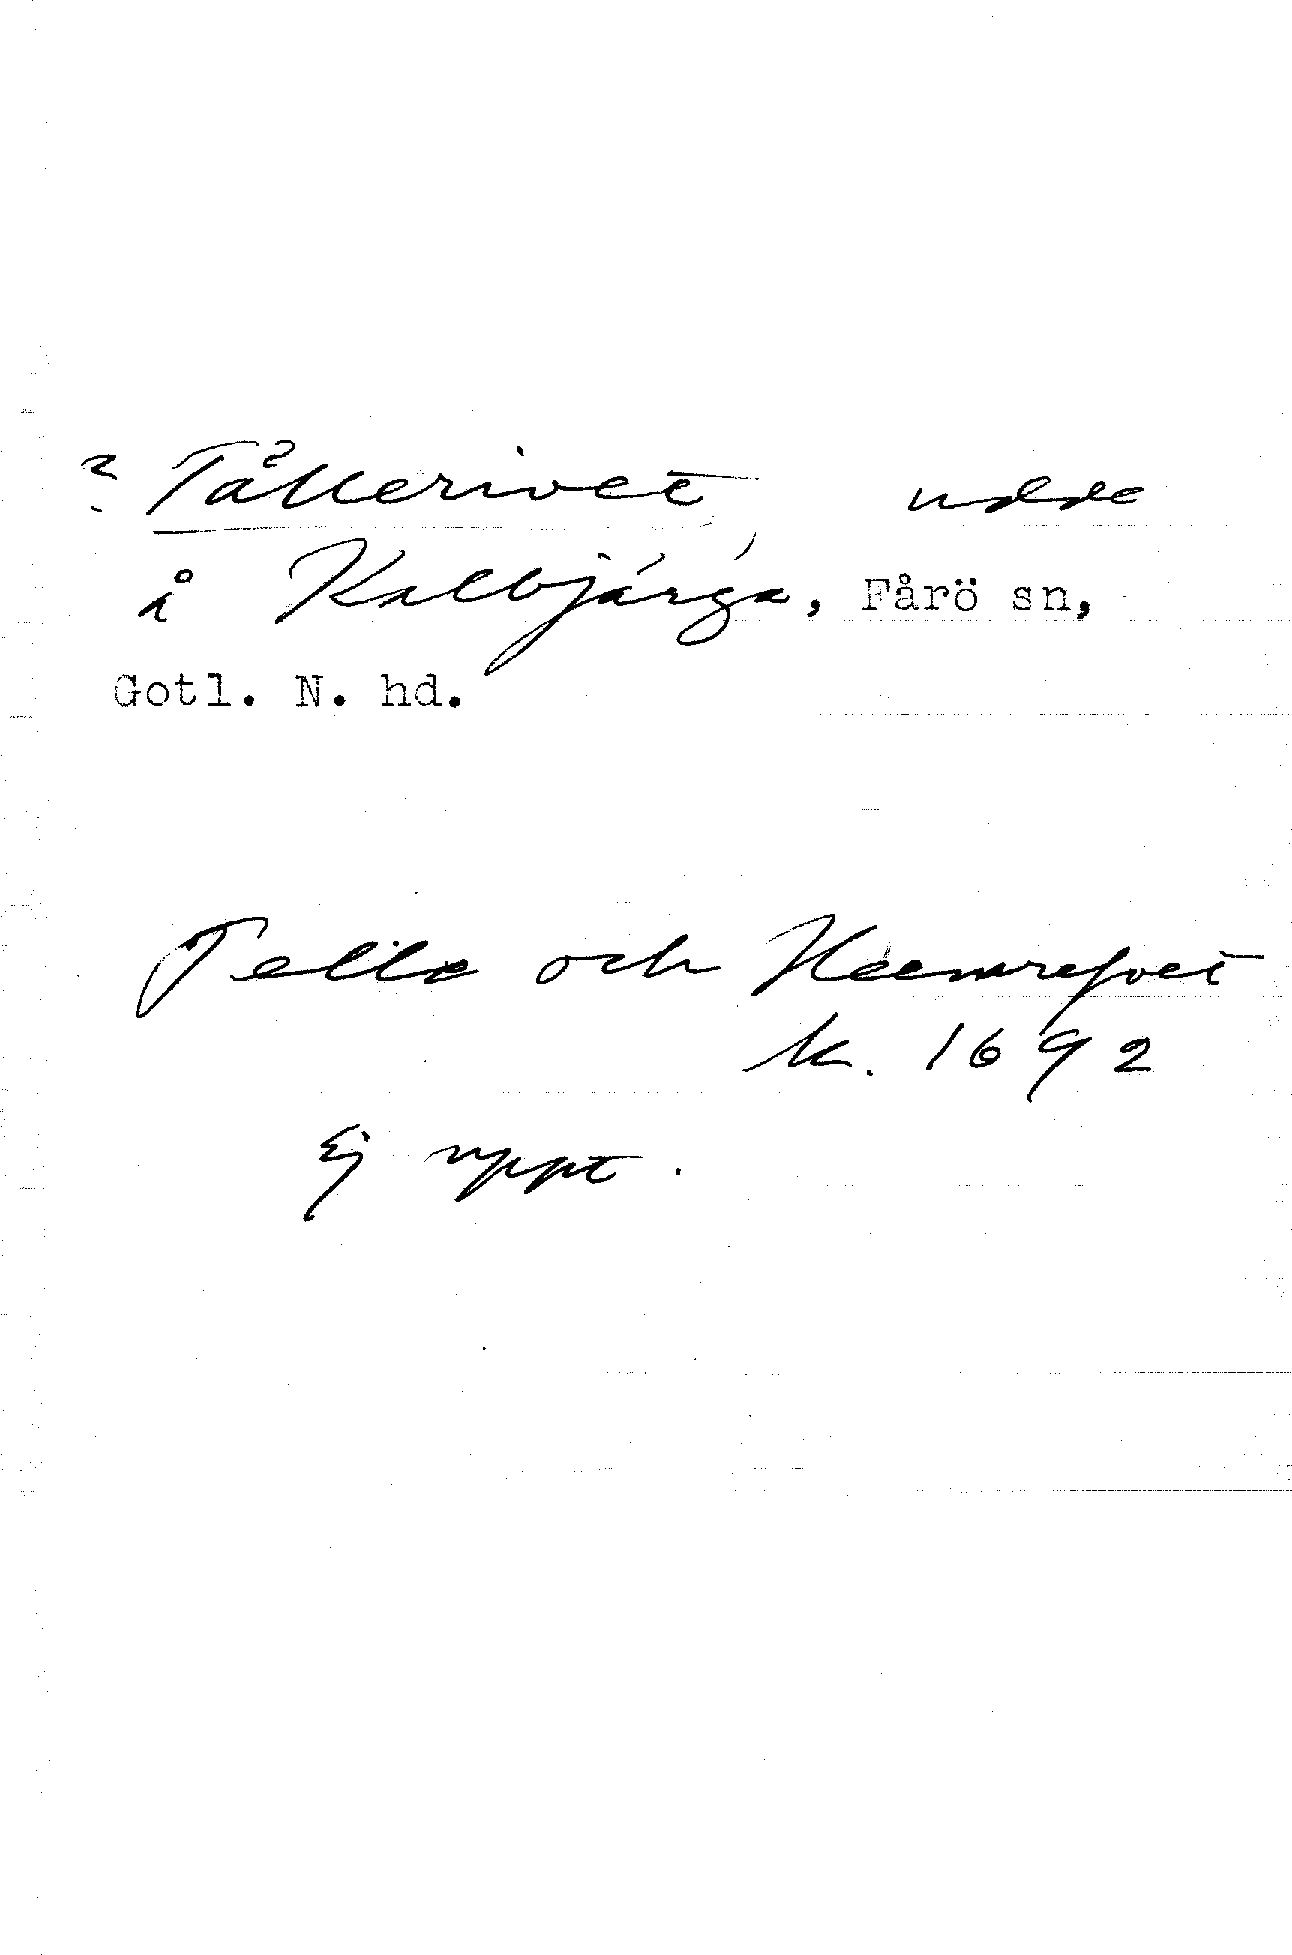 ? Tållerivet, udde
å Kalbjärga, Fårö sn,
Gotl. N. hd.
Tella och Heemrefvet
k. 1692
Ej uppt.